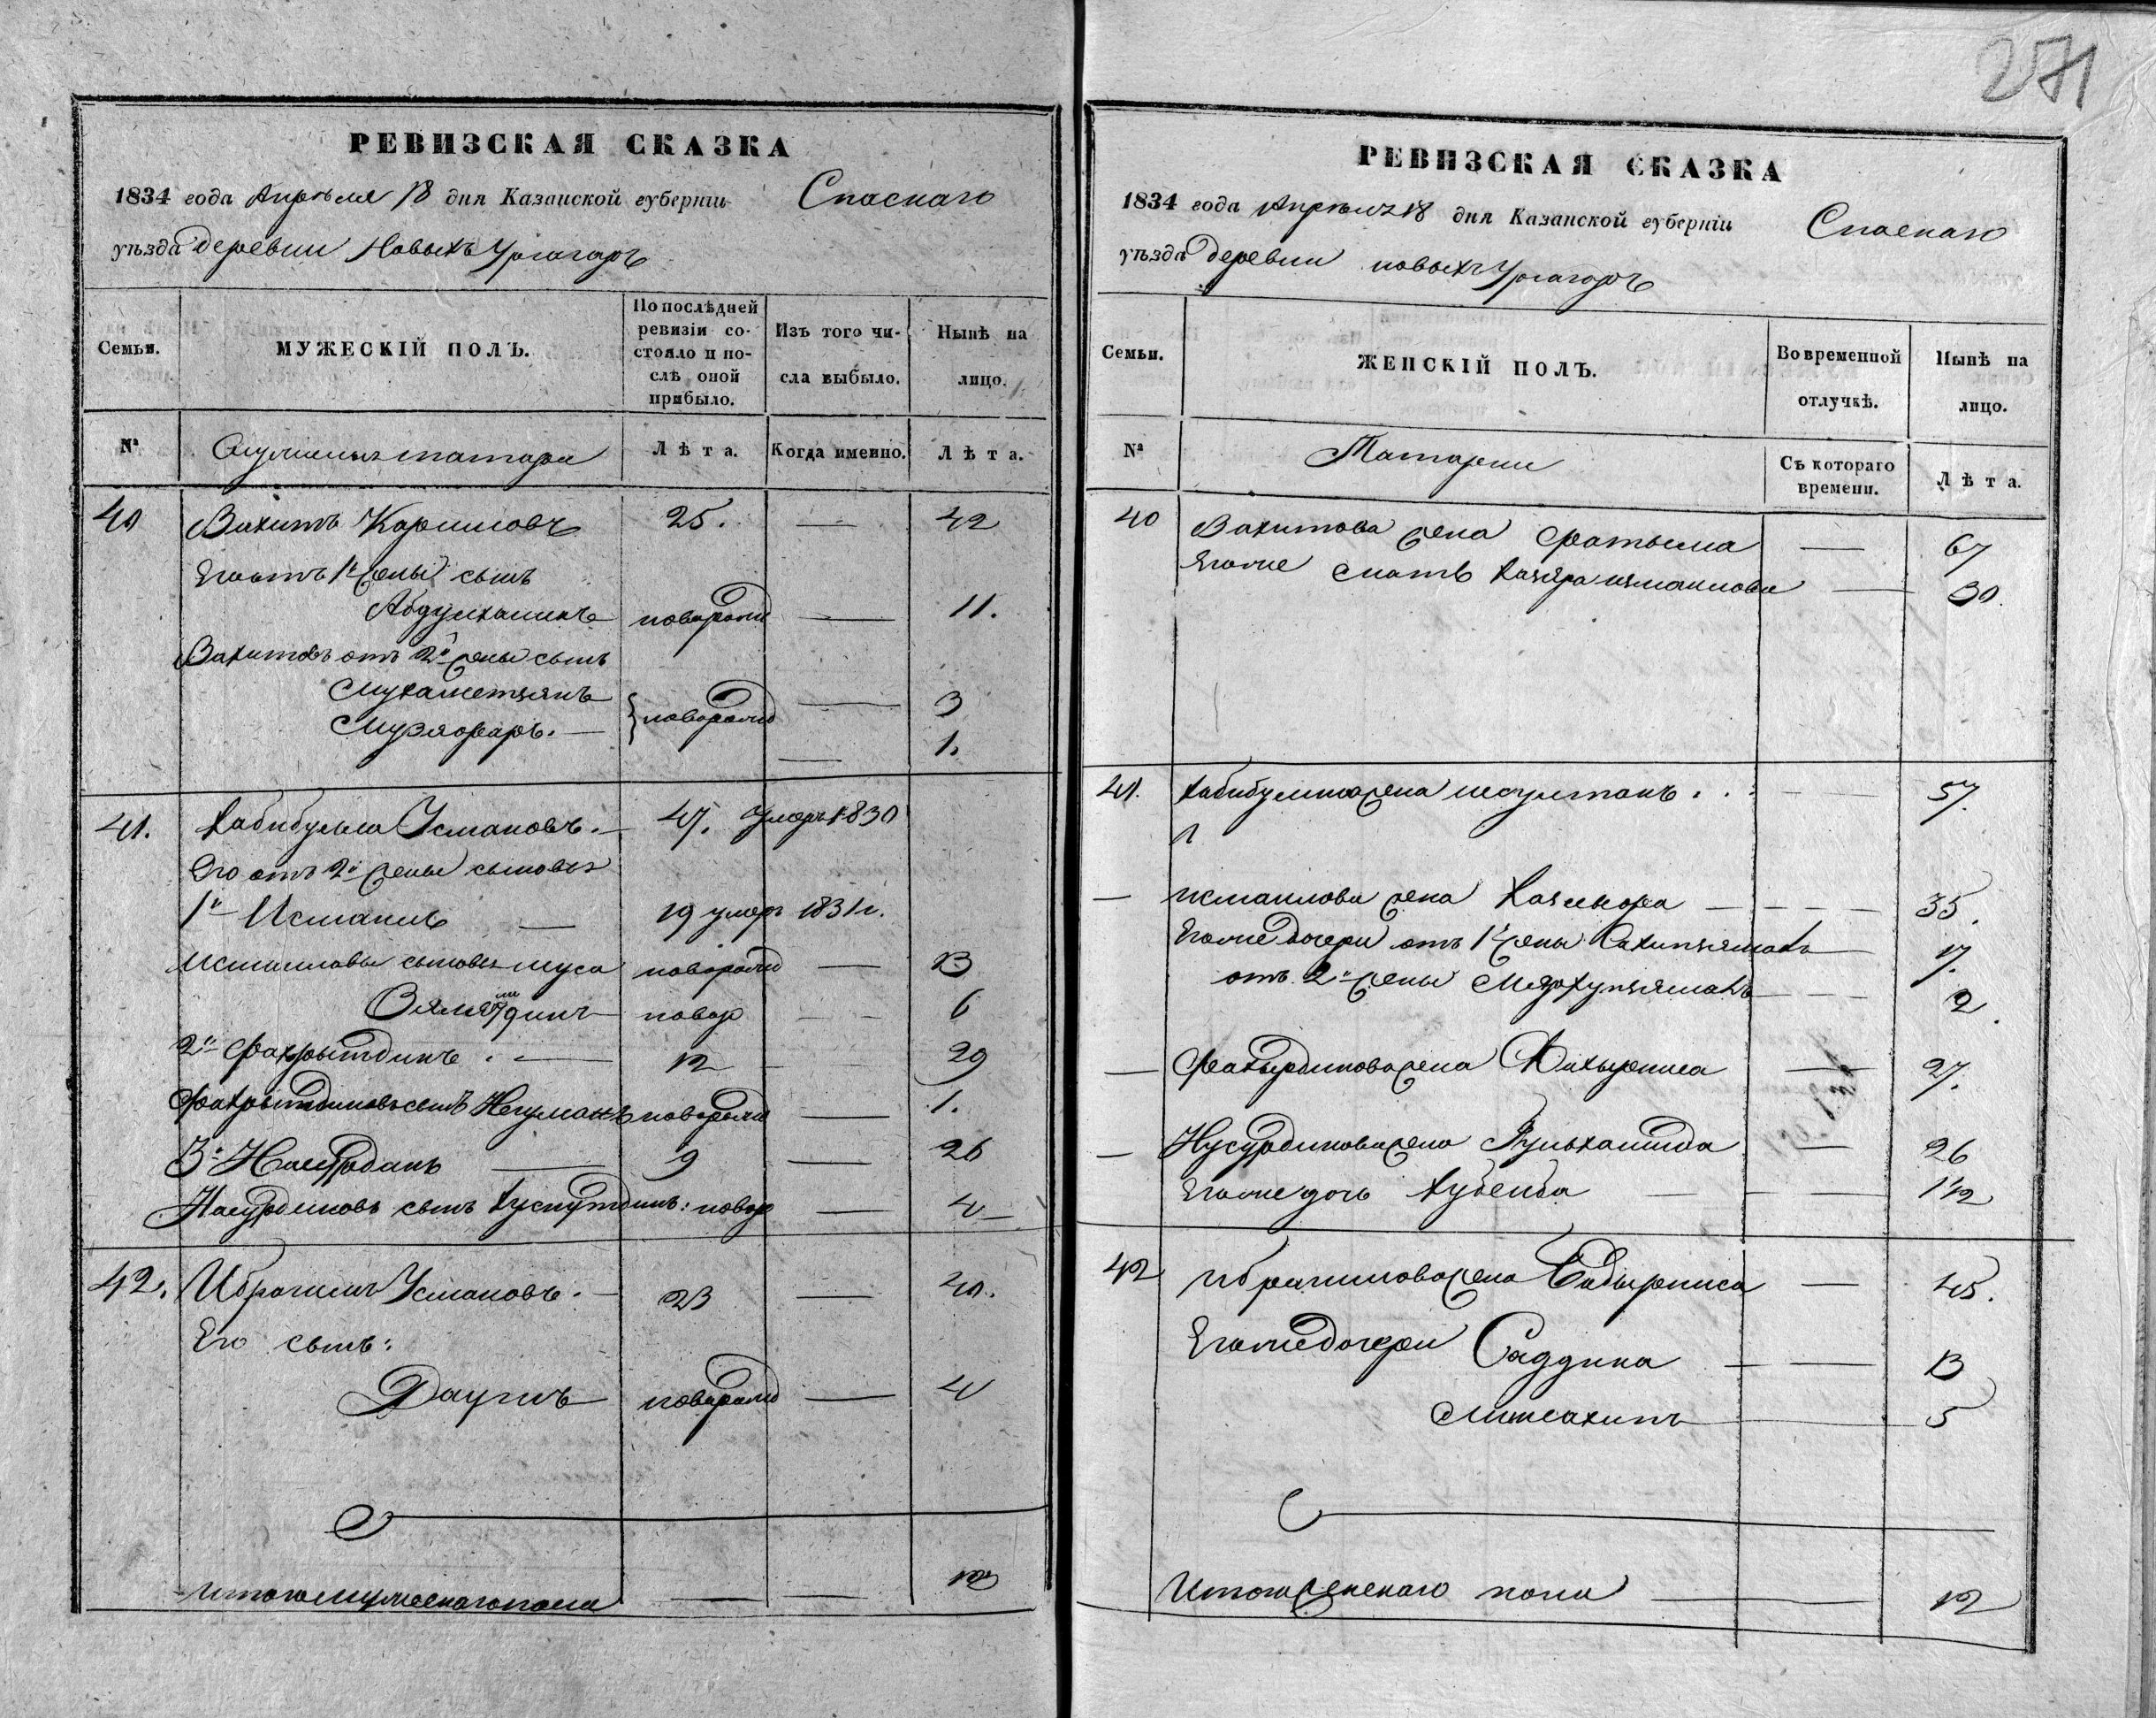 271
РЕВИЗСКАЯ СКАЗКА
1834 года Апреля 18 дня Казанской губерніи Спаскаго
уѣзда деревни Новыхъ Ургагаръ
Семьи.
МУЖЕСКІЙ ПОЛЪ.
По послѣдней ревизіи со-стояло и по-слѣ оной прибыло.
Изъ того чи-сла выбыло.
Нынѣ на лицо.
№
татара
Лѣта.
Когда именно.
Лѣта.
40 Вахитъ Каримовъ 25. — 42
Его отъ 1й жены сынъ
Абдулханикъ новорожд — 11.
Вахитовъ отъ 2й жены сынъ
Мухаметзянъ — 3
Музяфаръ. — новорожд — 1.
41. Хабибулла Усмановъ. — 47. умеръ 1830
Его отъ 2й жены сыновья
1й Исмаилъ — 19 умеръ 1831г.
Исмаиловы сыновья Муса новорожд — 13
новор — 6
2й Фахрытдинъ. — 12 — 29
Фахрытдиновъ сынъ Негуманъ новорожд — 1.
3й — 9 — 26
Насурдиновъ сынъ Хуснутдинъ: новор — 4
42. Ибрагимъ Усмановъ. — 23 — 40.
Его сынъ:
Даутъ новорожд — 4
Итого мужескаго пола — — 12
РЕВИЗСКАЯ СКАЗКА
1834 года Апреля 18 дня Казанской губерніи Спаскаго
уѣзда деревни новыхъ Ургагаръ
Семьи.
ЖЕНСКІЙ ПОЛЪ.
Во временной отлучкѣ.
Нынѣ на лицо.
№
Татарки
Съ котораго времени.
Лѣта.
40 Вахитова жена Фатыма — 67
Исмаилова — 30.
41. Хабибуллина жена — 57.
— Исмаилова жена — 35.
Его же дочери отъ 1й жены — 17.
отъ 2й жены — 2.
— Фахырдинова жена — 27.
— Нусурдинова жена Гульхамида — 26
Его же дочь Хубейба — 1 1/2
42 Ибрагимова жена Бадырниса — 45.
Его же дочери — 13
— 5
Итого женскаго пола — 12